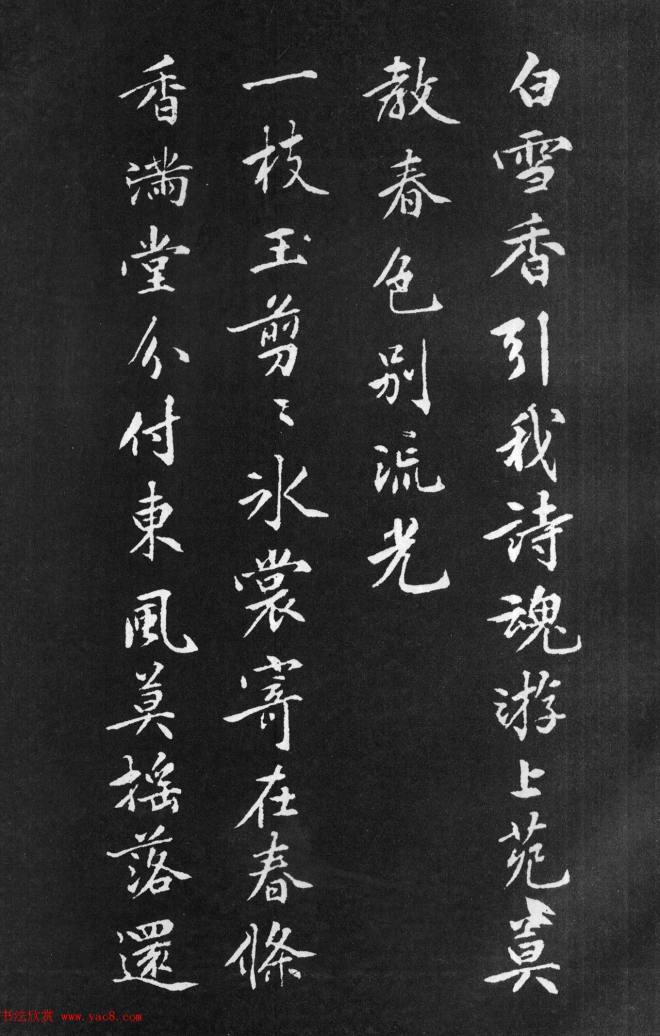 白雪香引我詩魂游上苑莫
教春色別流光
一枝玉剪〻氷裳寄在春條
香滿堂分付東風莫摇落還
书法欣赏 www.yac8.com